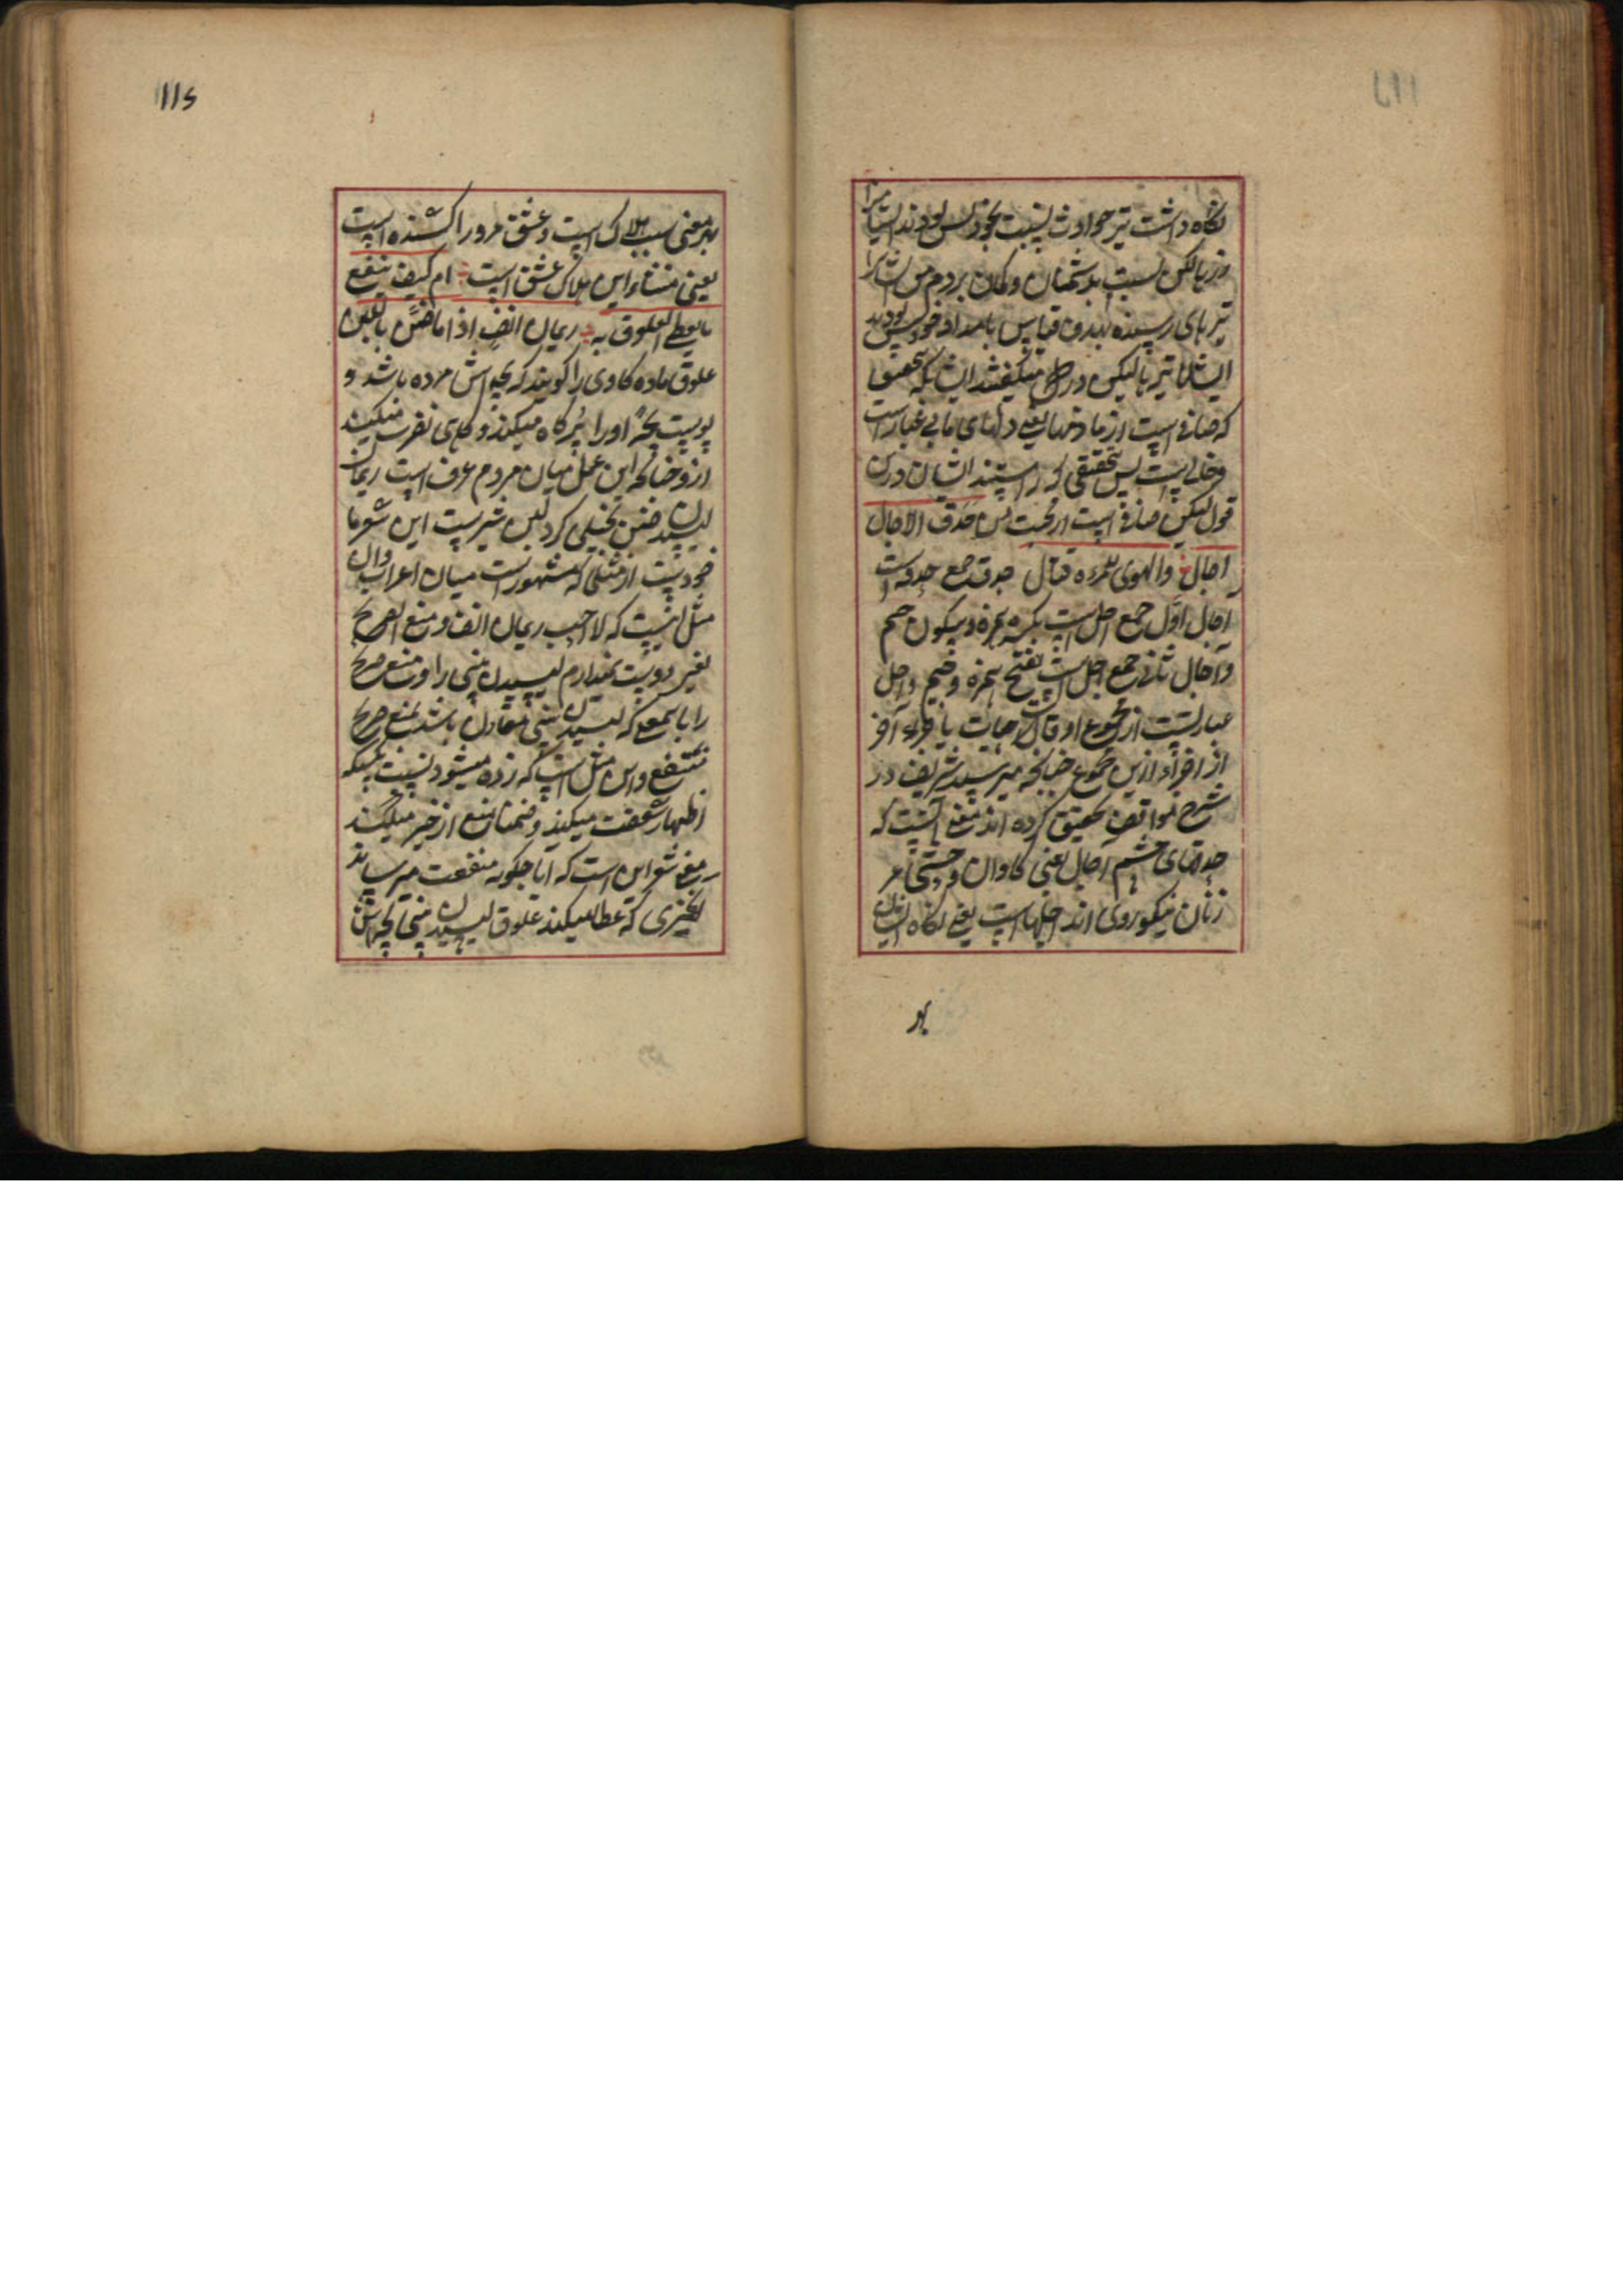 نگاه داشت تیر حوادث نسبت بخود پس بودند ایشان
وزربا لکن نسبت بدشمنان و گمان بردم من ایشان را
تیرهای رسیده بهدف قیاس بامداد خود پس بودند
ایشان تیرها لیکن در دل من میگفتند ایشان که تحقیق
که صافی است از ما دلها یعنی دلهای ما بی غبار است
و خالی است پس تحقیق که راستند ایشان درین
قول لیکن صافی است از محبت من حدق الآجال
آجال والهوی للمرء قتال حدق جمع حدقه است
آجال اول جمع اجل است بکسر همزه و سکون جیم
و آجال ثانی جمع اجل است بفتح همزه و جیم و اجل
عبارتست از مجموع اوقات حیات یا جزء آخر
از افراد ازین مجموع چنانچه میر سید شریف در
شرح مواقف تحقیق کرده اند معنی آنست که
حدقهای چشم آجال یعنی گاوان وحشی مر
زنان نیکو روی اند اجلها است یعنی نگاه ایشان
بهر
۱۱۶
بهر معنی سبب هلاک است و عشق مرور را کشنده است
یعنی منشاء این هلاک عشق است ام کیف ینفع
ما یعطی العلوق به ریمان انف اذا ما ضن باللبن
علوق ماده گاوی را گویند که بچه اش مرده باشد و
پوست بچه او را پر کاه میکنند و گاهی نفرت میکند
ازو چنانکه این عمل میان مردم عرف است ریمان
لیسیدن ضنن بخیلی کرد لبن شیرست این شعر ما
خوذست از مثلی که مشهور است میان اعراب و آن
مثل اینست که لا احب ریمان انف و منع الضرع
یعنی دوست نمیدارم لیسیدن بینی را و منع ضرع
را بآنمعنی که لیسیدن بینی مقارن باشد بمنع ضرع
منتفع و این مثل است که زده میشود نسبت بکسیکه
اظهار شفقت میکند و ضمنا منع از خیر میکند
معنی شعر این است که آیا چگونه منفعت میرساند
بچیزی که عطا میکند علوق لیسیدن بینی بچه اش